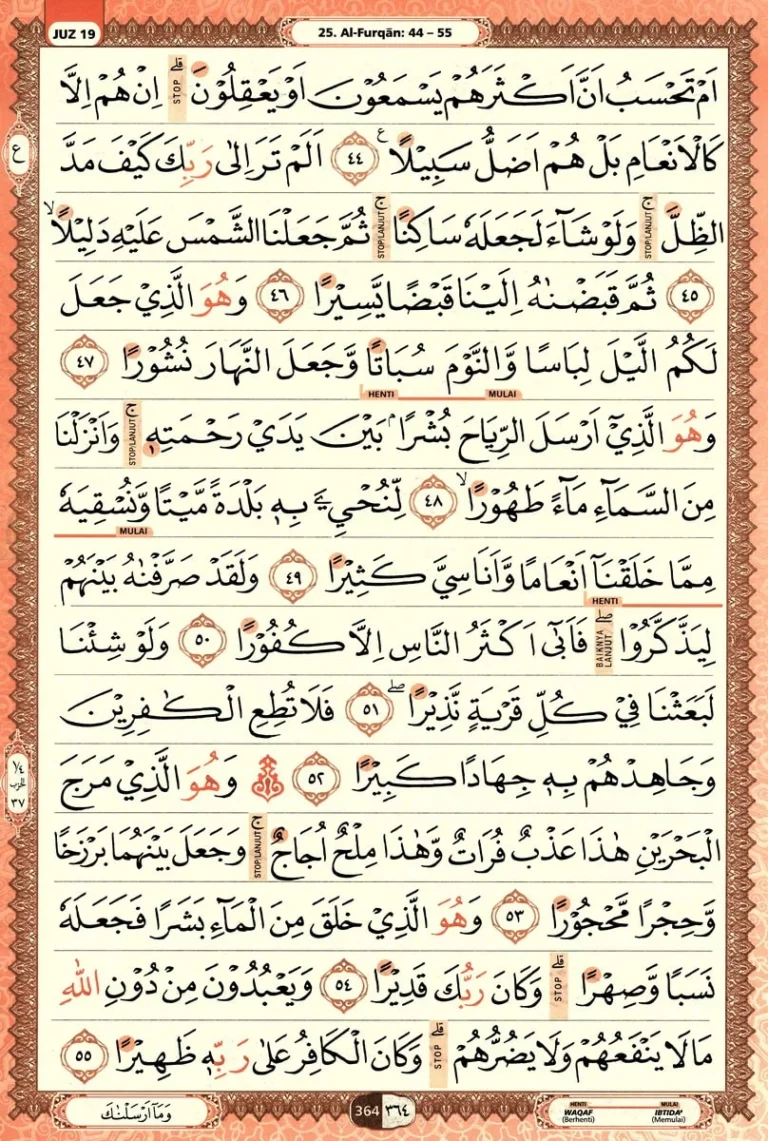 JUZ 19
25. Al-Furqān: 44 – 55
اَمْ تَحْسَبُ اَنَّ اَكْثَرَهُمْ يَسْمَعُوْنَ اَوْ يَعْقِلُوْنَۗ STOP اِنْ هُمْ اِلَّا
ع
كَالْاَنْعَامِ بَلْ هُمْ اَضَلُّ سَبِيْلًا ࣖ ٤٤ اَلَمْ تَرَ اِلٰى رَبِّكَ كَيْفَ مَدَّ
الظِّلَّۚ STOP/LANJUT وَلَوْ شَاۤءَ لَجَعَلَهٗ سَاكِنًاۚ STOP/LANJUT ثُمَّ جَعَلْنَا الشَّمْسَ عَلَيْهِ دَلِيْلًاۙ
٤٥ ثُمَّ قَبَضْنٰهُ اِلَيْنَا قَبْضًا يَّسِيْرًا ٤٦ وَهُوَ الَّذِيْ جَعَلَ
لَكُمُ الَّيْلَ لِبَاسًا وَّالنَّوْمَ سُبَاتًا وَّجَعَلَ النَّهَارَ نُشُوْرًا ٤٧
MULAI HENTI
وَهُوَ الَّذِيْٓ اَرْسَلَ الرِّيَاحَ بُشْرًاۢ بَيْنَ يَدَيْ رَحْمَتِهٖۚ STOP/LANJUT وَاَنْزَلْنَا
مِنَ السَّمَاۤءِ مَاۤءً طَهُوْرًاۙ ٤٨ لِّنُحْيِ َۧ بِهٖ بَلْدَةً مَّيْتًا وَّنُسْقِيَهٗ
MULAI
مِمَّا خَلَقْنَآ اَنْعَامًا وَّاَنَاسِيَّ كَثِيْرًا ٤٩ وَلَقَدْ صَرَّفْنٰهُ بَيْنَهُمْ
HENTI
لِيَذَّكَّرُوْاۖ BAIKNYA LANJUT فَاَبٰىٓ اَكْثَرُ النَّاسِ اِلَّا كُفُوْرًا ٥٠ وَلَوْ شِئْنَا
لَبَعَثْنَا فِيْ كُلِّ قَرْيَةٍ نَّذِيْرًاۖ ٥١ فَلَا تُطِعِ الْكٰفِرِيْنَ
وَجَاهِدْهُمْ بِهٖ جِهَادًا كَبِيْرًا ٥٢ ۞ وَهُوَ الَّذِيْ مَرَجَ
¼
الحزب
٣٧
الْبَحْرَيْنِ هٰذَا عَذْبٌ فُرَاتٌ وَّهٰذَا مِلْحٌ اُجَاجٌۚ STOP/LANJUT وَجَعَلَ بَيْنَهُمَا بَرْزَخًا
وَّحِجْرًا مَّحْجُوْرًا ٥٣ وَهُوَ الَّذِيْ خَلَقَ مِنَ الْمَاۤءِ بَشَرًا فَجَعَلَهٗ
نَسَبًا وَّصِهْرًاۗ STOP وَكَانَ رَبُّكَ قَدِيْرًا ٥٤ وَيَعْبُدُوْنَ مِنْ دُوْنِ اللّٰهِ
مَا لَا يَنْفَعُهُمْ وَلَا يَضُرُّهُمْۗ STOP وَكَانَ الْكَافِرُ عَلٰى رَبِّهٖ ظَهِيْرًا ٥٥
وَمَآ اَرْسَلْنٰكَ
364 ٣٦٤
HENTI MULAI
WAQAF IBTIDA'
(Berhenti) (Memulai)